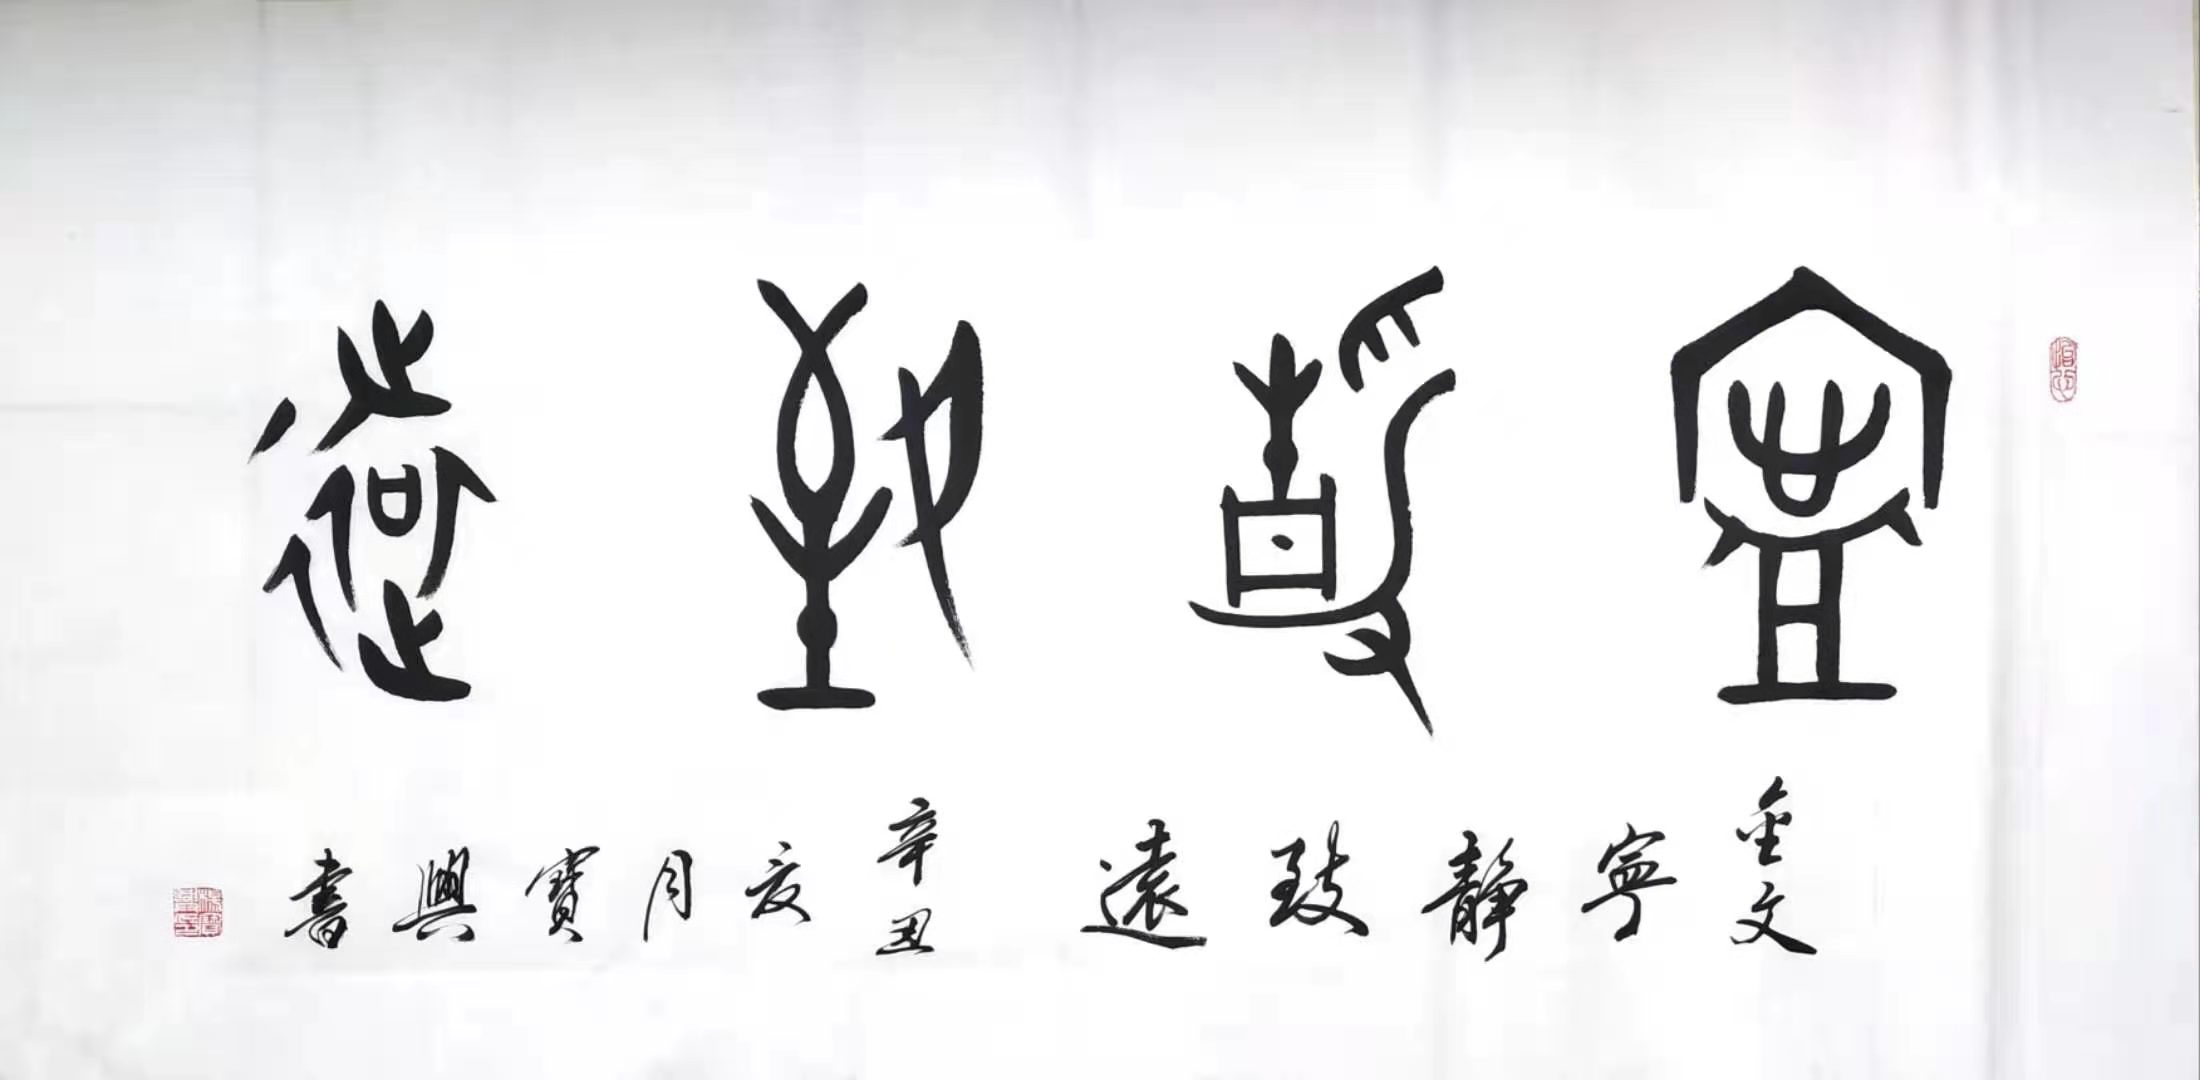 寧靜致遠
金文寧靜致遠 辛丑亥月寶興書